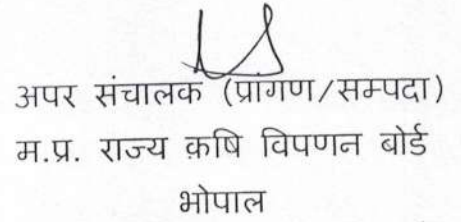 अपर संचालक (प्रांगण/सम्पदा)
म.प्र. राज्य क़षि विपणन बोर्ड
भोपाल